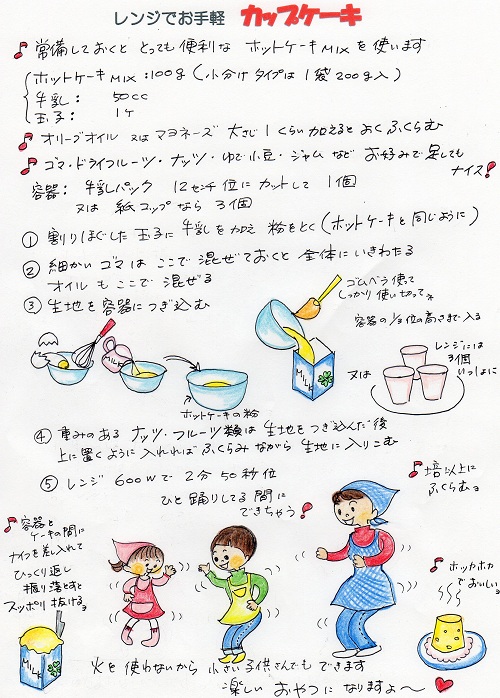 レンジでお手軽 カップケーキ
♪ 常備しておくと とっても便利な ホットケーキMIXを使います
ホットケーキMIX:100g(小分けタイプは1袋200g入)
牛乳: 50cc
玉子: 1ヶ
♪ オリーブオイル 又は マヨネーズ 大さじ1くらい加えると よくふくらむ
♪ ゴマ・ドライフルーツ・ナッツ・ゆで小豆・ジャムなど お好みで足しても
ナイス!
容器: 牛乳パック 12センチ位にカットして 1個
又は 紙コップなら 3個
① 割りほぐした玉子に牛乳を加え 粉をとく(ホットケーキと同じように)
② 細かいゴマはここで混ぜておくと全体にいきわたる
オイルもここで混ぜる
③ 生地を容器につぎ込む
ゴムベラ使って
しっかり使い切ってネ
容器の1/3位の高さまで入る
MILK
ホットケーキの粉
MILK
又は
レンジには
3個
いっしょに
④ 重みのあるナッツ・フルーツ類は生地をつぎ込んだ後
上に置くように入れればふくらみながら生地に入りこむ
⑤ レンジ600wで2分50秒位
ひと踊りしてる間に
できちゃう!
♪ 倍以上に
ふくらむョ
♪ 容器と
ケーキの間に
ナイフを差し入れて
ひっくり返し
振り落とすと
スッポリ抜けるョ
♪ ホッカホカ
でおいしいョ
MILK
火を使わないから小さい子供さんでもできます
楽しいおやつになりますよ〜♥